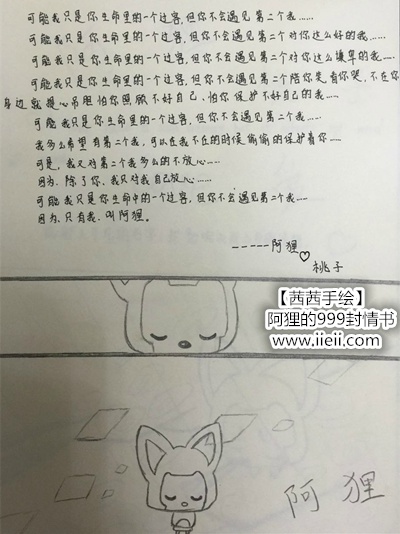 可能我只是你生命里的一个过客,但你不会遇见第二个我......
可能我只是你生命里的一个过客,但你不会遇见第二个对你这么好的我......
可能我只是你生命里的一个过客,但你不会遇见第二个对你这么集单的我......
可能我只是你生命里的一个过客,但你不会遇见第二个陪你笑看你哭,不在你
身边就提心吊胆怕你照顾不好自己、怕你保护不好自己的我......
可能我只是你生命里的一个过客,但你不会遇见第二个我......
我多么希望有第二个我,可以在我不在的时候偷偷的保护着你......
可是,我又对第二个我多么的不放心......
因为,除了你,我只对我自己放心......
可能我只是你生命中的一个过客,但你不会遇见第二个我......
因为,只有我,叫阿狸。
-----阿狸
♡
桃子
【茜茜手绘】
阿狸的999封情书
www.iieii.com
阿狸